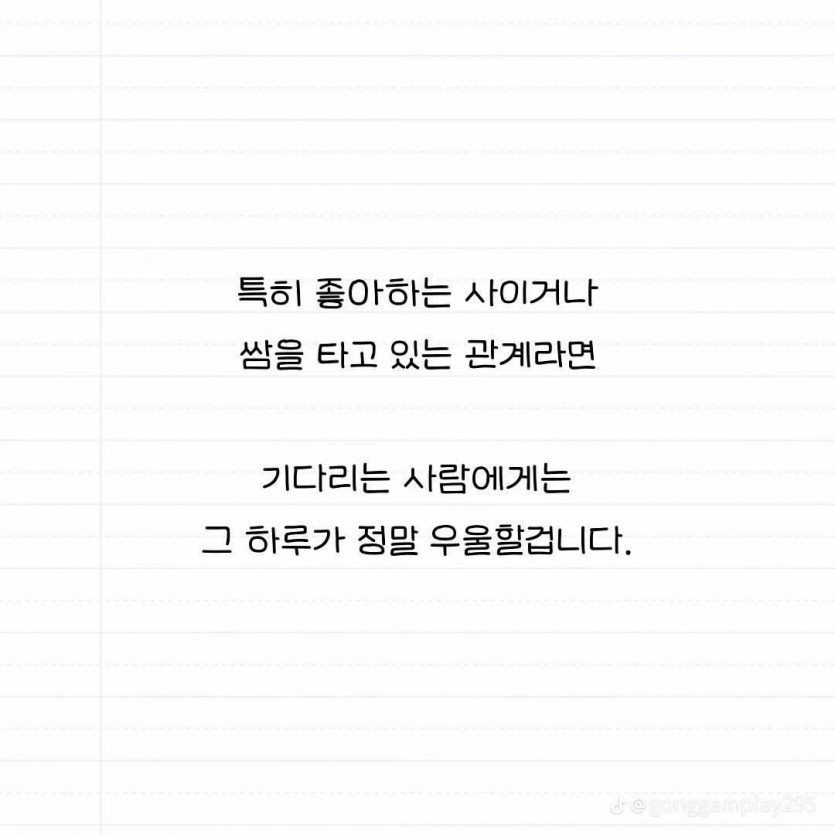 특히 좋아하는 사이거나
쌈을 타고 있는 관계라면
기다리는 사람에게는
그 하루가 정말 우울할겁니다.
@gonggamplay293